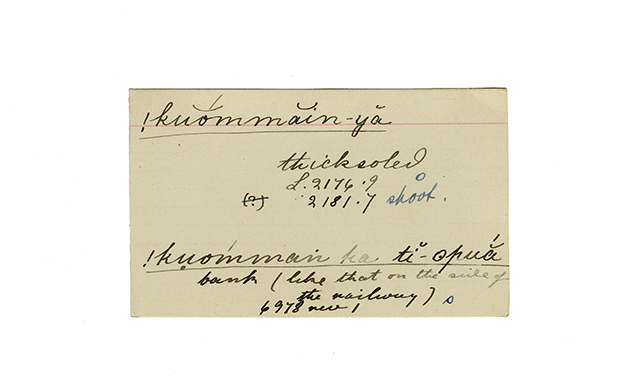 !kuŏ́mmăin-yă
thicksoled
L. 2176.9
(?) 2181.7 shoot.
!kuomman ka tĭ-opuá
bank (like that on the side of
the railway)
6978 rev,